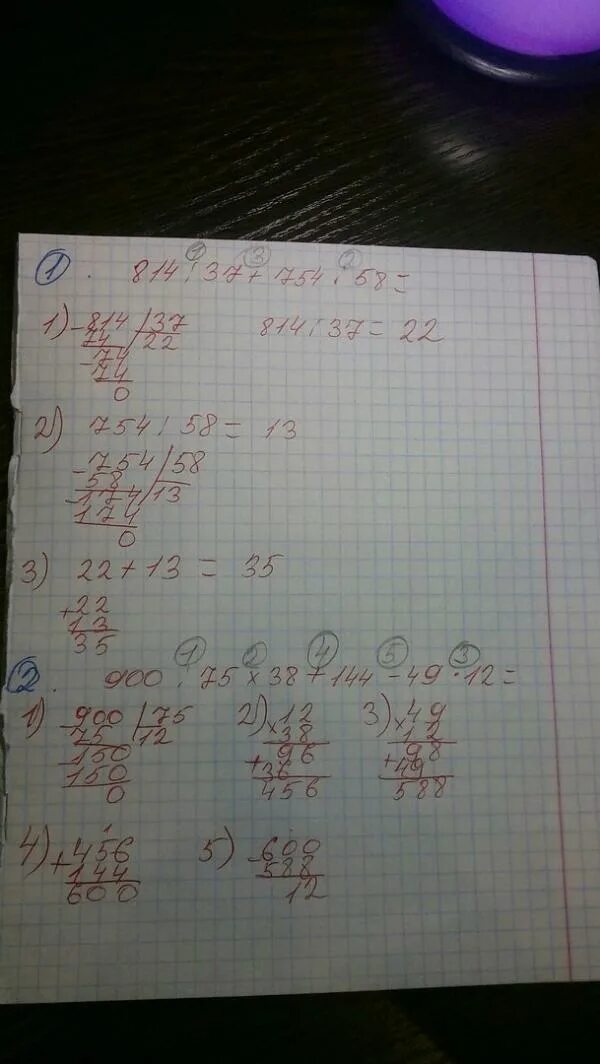 ① ③ ②
1. 814 : 37 + 754 : 58 =
1) -814 | 37 814 : 37 = 22
74 | 22
-74
74
0
2) 754 : 58 = 13
-754 | 58
58 | 13
-174
174
0
3) 22 + 13 = 35
+22
13
35
① ② ④ ⑤ ③
2. 900 : 75 × 38 + 144 - 49 · 12 =
1) -900 | 75 2) ×12 3) ×49
75 | 12 38 12
-150 96 98
150 +36 +49
0 456 588
4) +456 5) -600
144 588
600 12